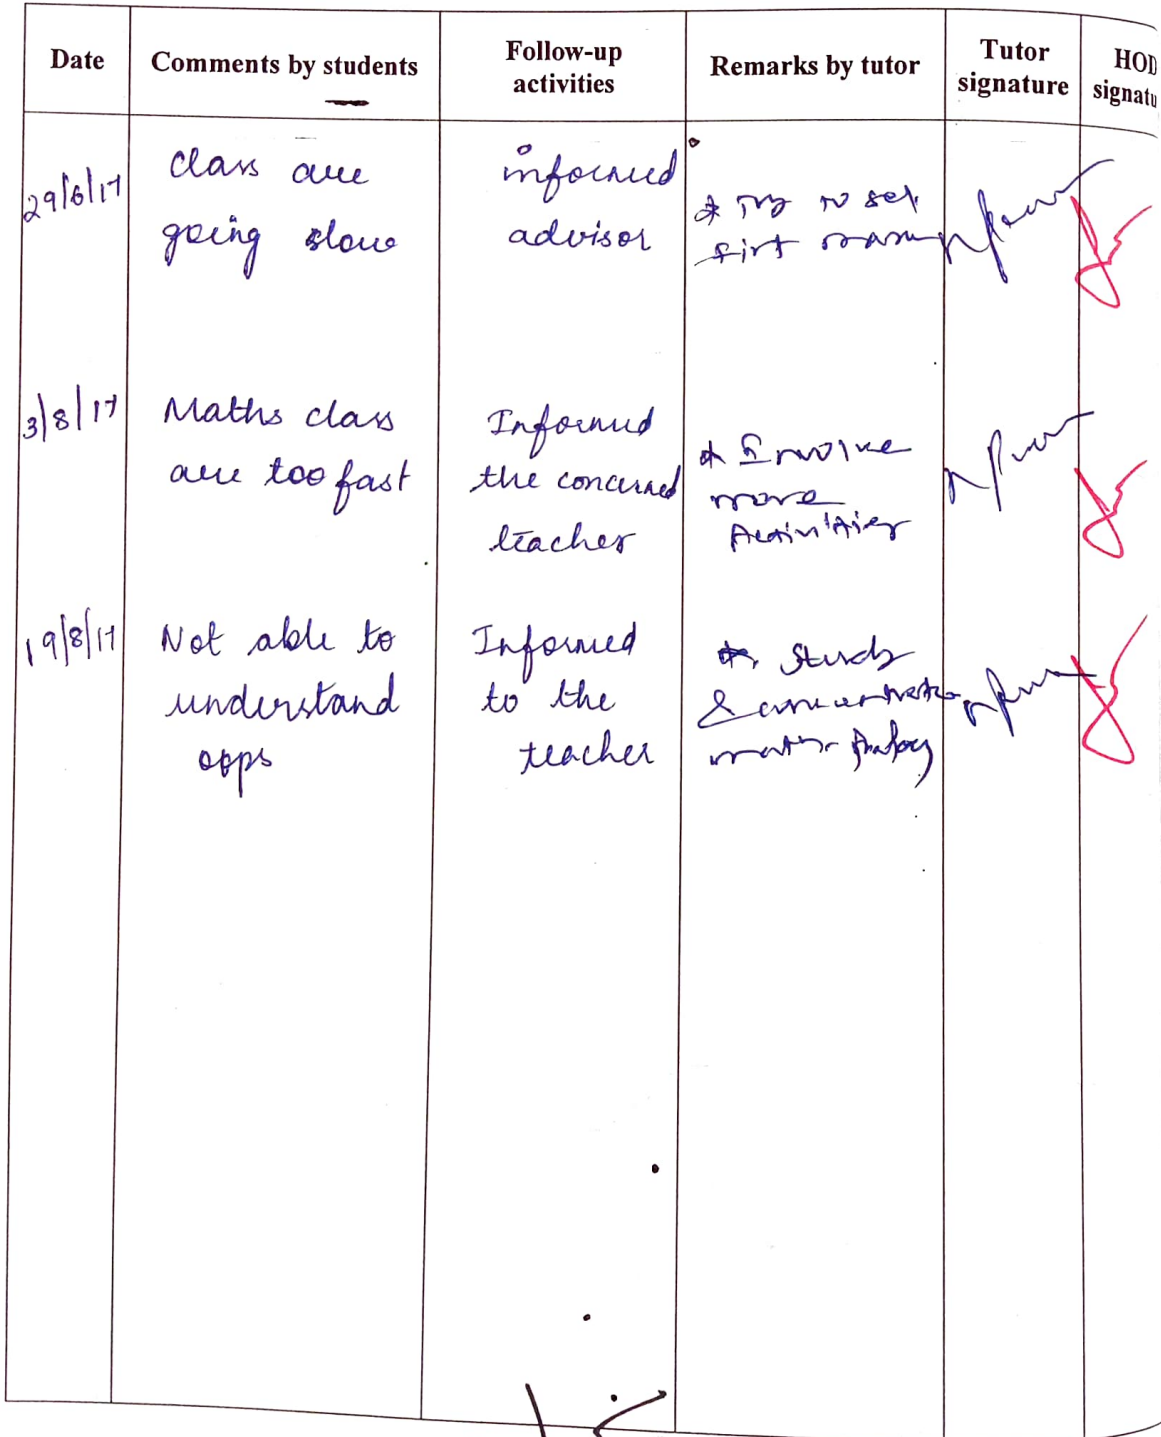 Date Comments by students Follow-up activities Remarks by tutor Tutor signature HOD signatu
29/6/17
class are
going slow
informed
advisor
* Try to
first
3/8/17
Maths class
are too fast
Informed
the concerned
teacher
* Involve
more
Activities
19/8/17
Not able to
understand
oops
Informed
to the
teacher
* Study
&